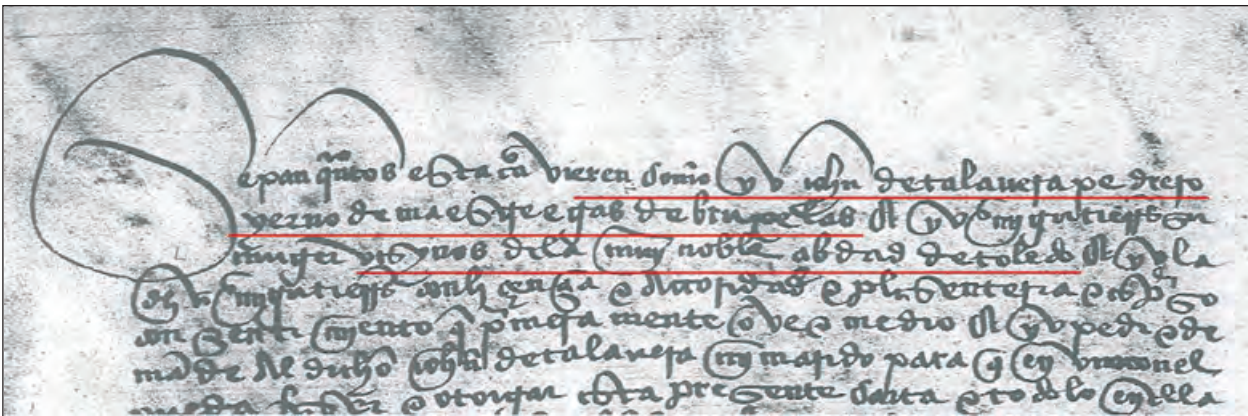 Sepan quantos esta carta vieren como yo iohn de talavera pedrero
yerno de maestre egas de bruxelas e yo mari gutierres su
muger vesinos de la muy noble abdad de toledo e yo la
dicha mari gutierres con liçençia e actoridad e plasenteria e espreso
consentimiento que primera mente ove e medio e yo pedi e de
mande al dicho iohn de talavera my marido para que en uno con el
pueda faser e otorgar esta presente carta e todo lo en ella